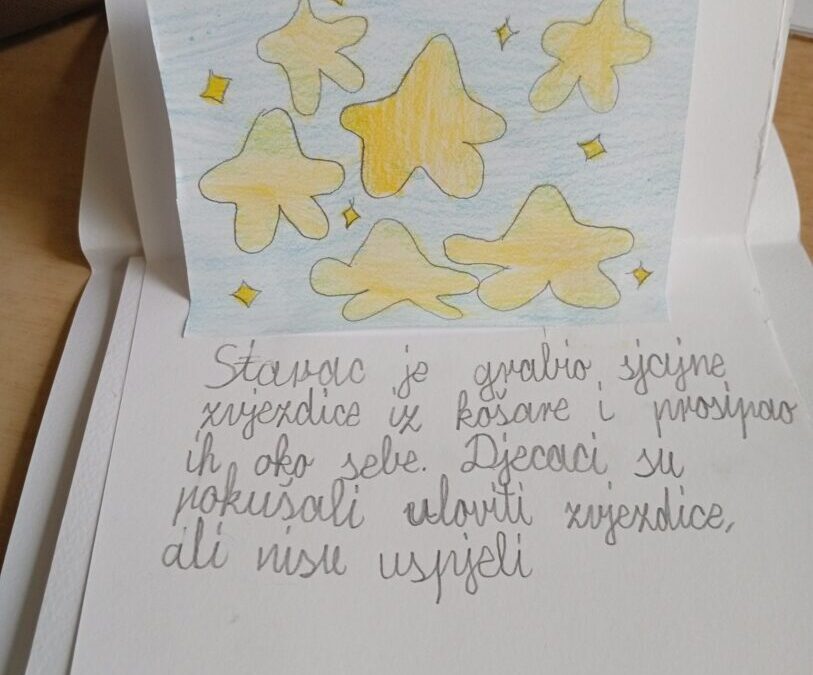 Starac je grabio sjcjne
zvjezdice iz košare i prosipao
ih oko sebe. Djecaci su
pokušali uloviti zvjezdice,
ali nisu uspjeli